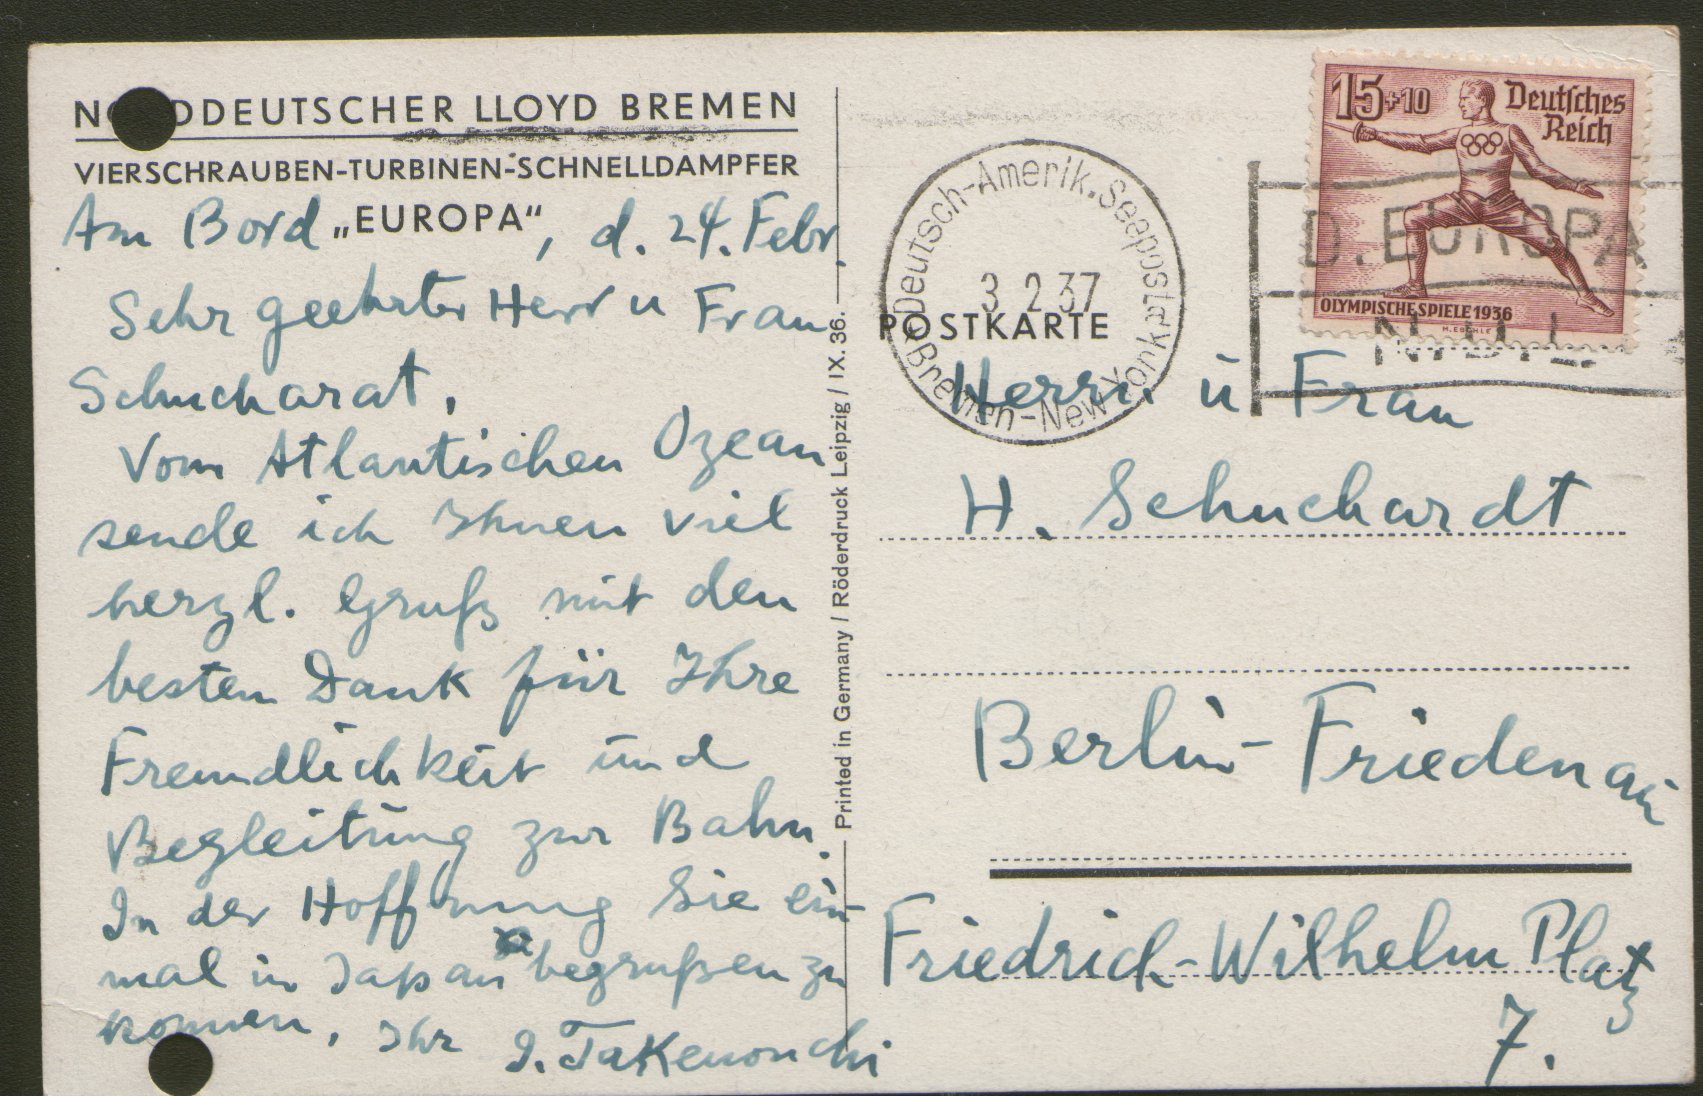 NORDDEUTSCHER LLOYD BREMEN
VIERSCHRAUBEN-TURBINEN-SCHNELLDAMPFER
Am Bord „EUROPA“, d. 24. Febr.
Sehr geehrter Herr u Frau
Schucharat,
Vom Atlantischen Ozean
sende ich Ihnen viel
herzl. Gruß mit den
besten Dank für Ihre
Freundlichkeit und
Begleitung zur Bahn.
In der Hoffnung Sie ein-
mal in Japan begrußen zu
konnen, Ihr I. Takenouchi
Printed in Germany / Röderdruck Leipzig / IX. 36.
Deutsch-Amerik. Seepost
Bremen-New York
3 2 37
POSTKARTE
15+10
Deutsches
Reich
OLYMPISCHE SPIELE 1936
M. ESCHLE
D. EUROPA
N.D.L.
Herrn ü Frau
H. Schuchardt
Berlin-Friedenau
Friedrich-Wilhelm Platz
7.